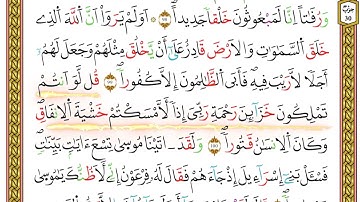 وَرُفَٰتًا إِنَّا لَمَبْعُوثُونَ خَلْقًا جَدِيدًا ۞ أَوَلَمْ يَرَوْا أَنَّ ٱللَّهَ ٱلَّذِے
خَلَقَ ٱلسَّمَٰوَٰتِ وَٱلْأَرْضَ قَادِرٌ عَلَىٰ أَنْ يَّخْلُقَ مِثْلَهُمْ وَجَعَلَ لَهُمْ
أَجَلًا لَّا رَيْبَ فِيهِ فَأَبَى ٱلظَّٰلِمُونَ إِلَّا كُفُورًا ۞ قُل لَّوْ أَنتُمْ
تَمْلِكُونَ خَزَآئِنَ رَحْمَةِ رَبِّيَ إِذًا لَّأَمْسَكْتُمْ خَشْيَةَ ٱلْإِنفَاقِ
وَكَانَ ٱلْإِنسَٰنُ قَتُورًا ١٠٠ وَلَقَدْ ءَاتَيْنَا مُوسَىٰ تِسْعَ ءَايَٰتٍۭ بَيِّنَٰتٍ
فَسْـَٔلْ بَنِےٓ إِسْرَآءِيلَ إِذْ جَآءَهُمْ فَقَالَ لَهُۥ فِرْعَوْنُ إِنِّے لَأَظُنُّكَ يَٰمُوسَىٰ
30